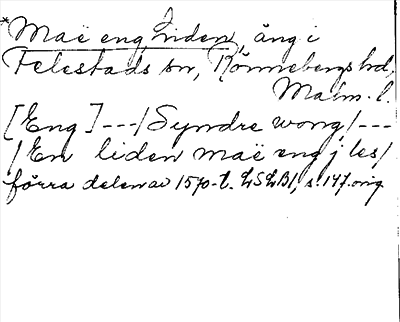 *Maë eng, Liden, äng i
Felestads sn, Rönnebergs hd,
Malm. l.
[Eng] --- / Syndre wong / ---
/ En liden maë eng j les /
förra delen av 1570-t. LSLB1, s. 147. orig